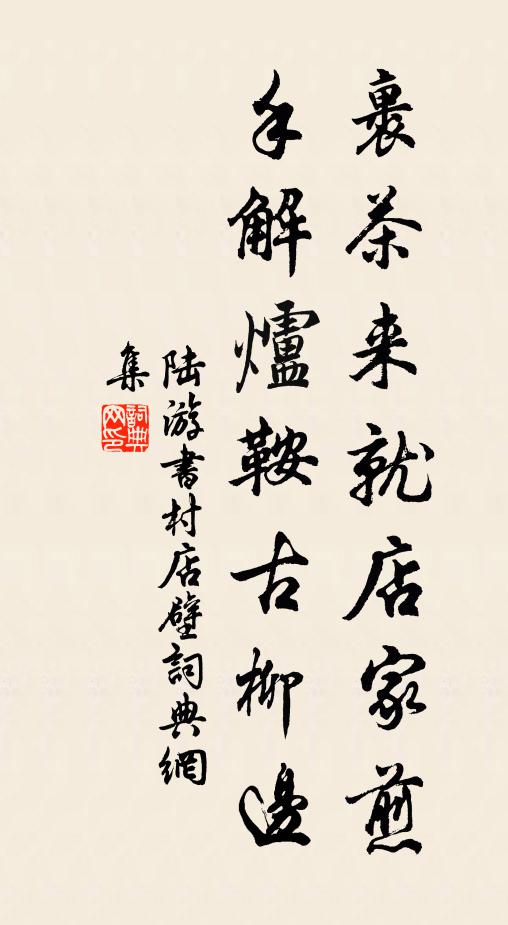 裹茶来就店家煎
手解爐鞍古柳邊
陆游書村店壁詞典網
集
詞典网印